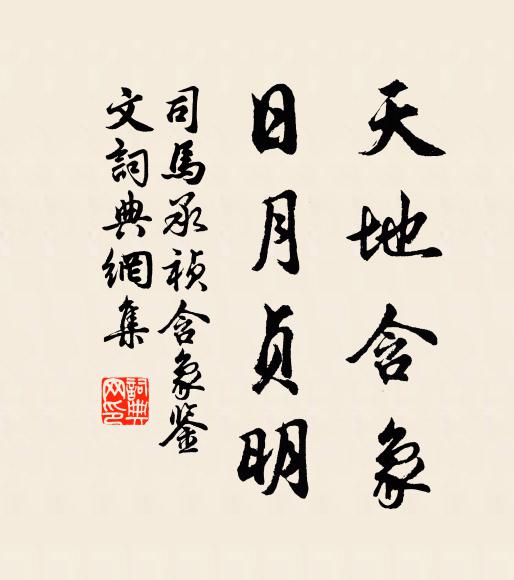 天地含象
日月貞明
司馬承禎含象鉴
文詞典網集
詞典
网印